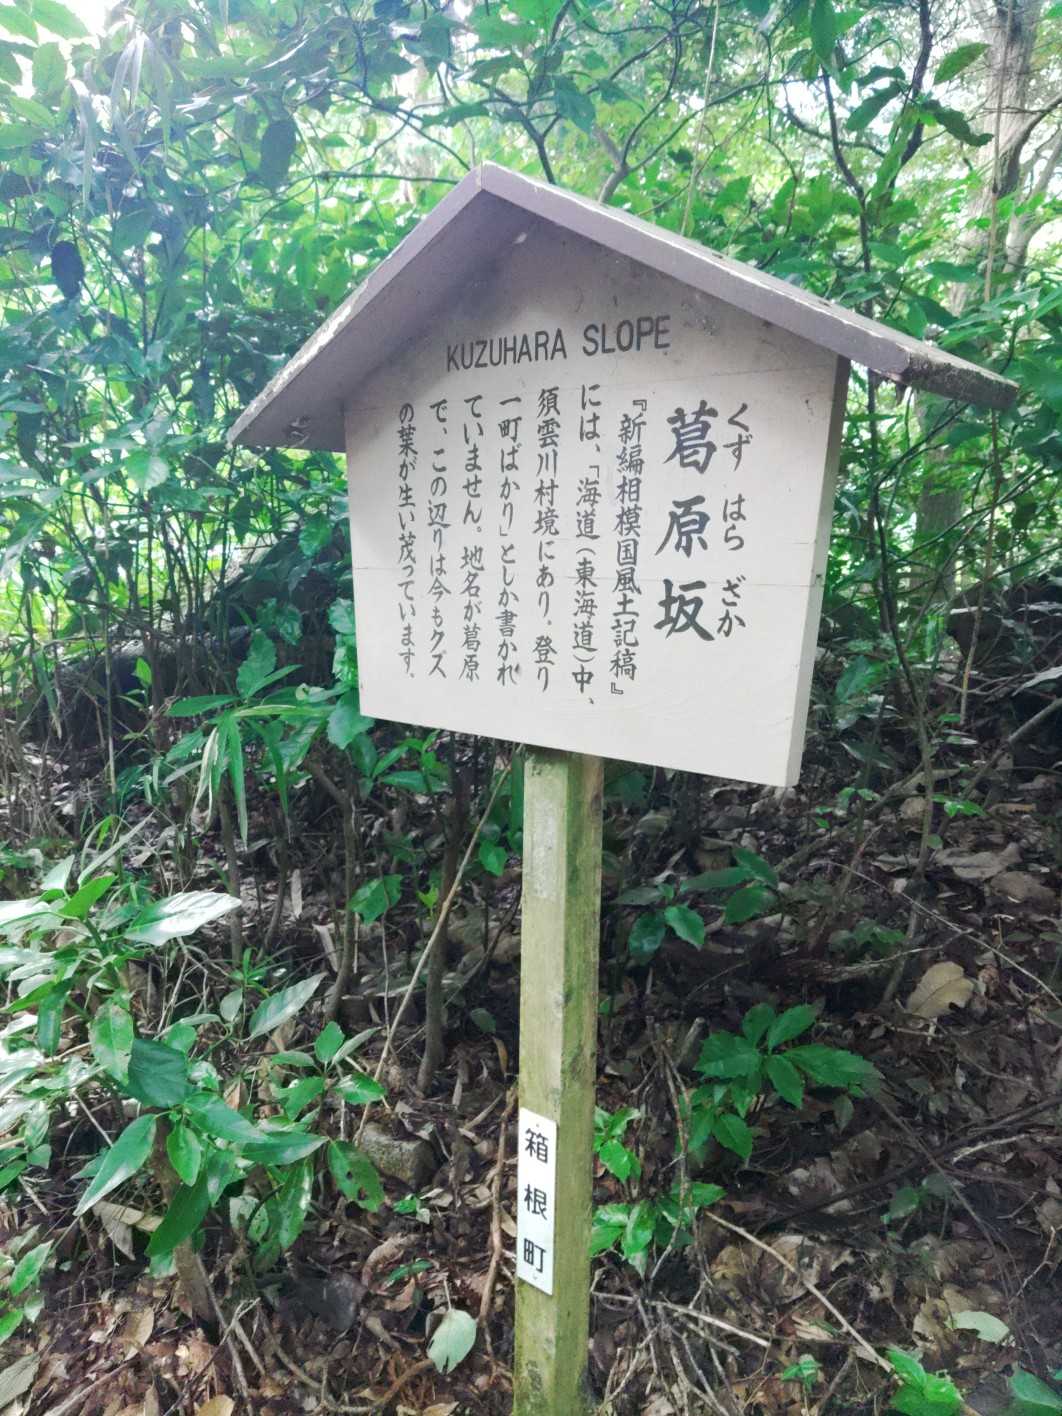 KUZUHARA SLOPE
くず はら ざか
葛原坂
『新編相模国風土記稿』
には、「海道（東海道）中、
須雲川村境にあり。登り
一町ばかり」としか書かれ
ていません。地名が葛原
で、この辺りは今もクズ
の葉が生い茂っています。
箱根町